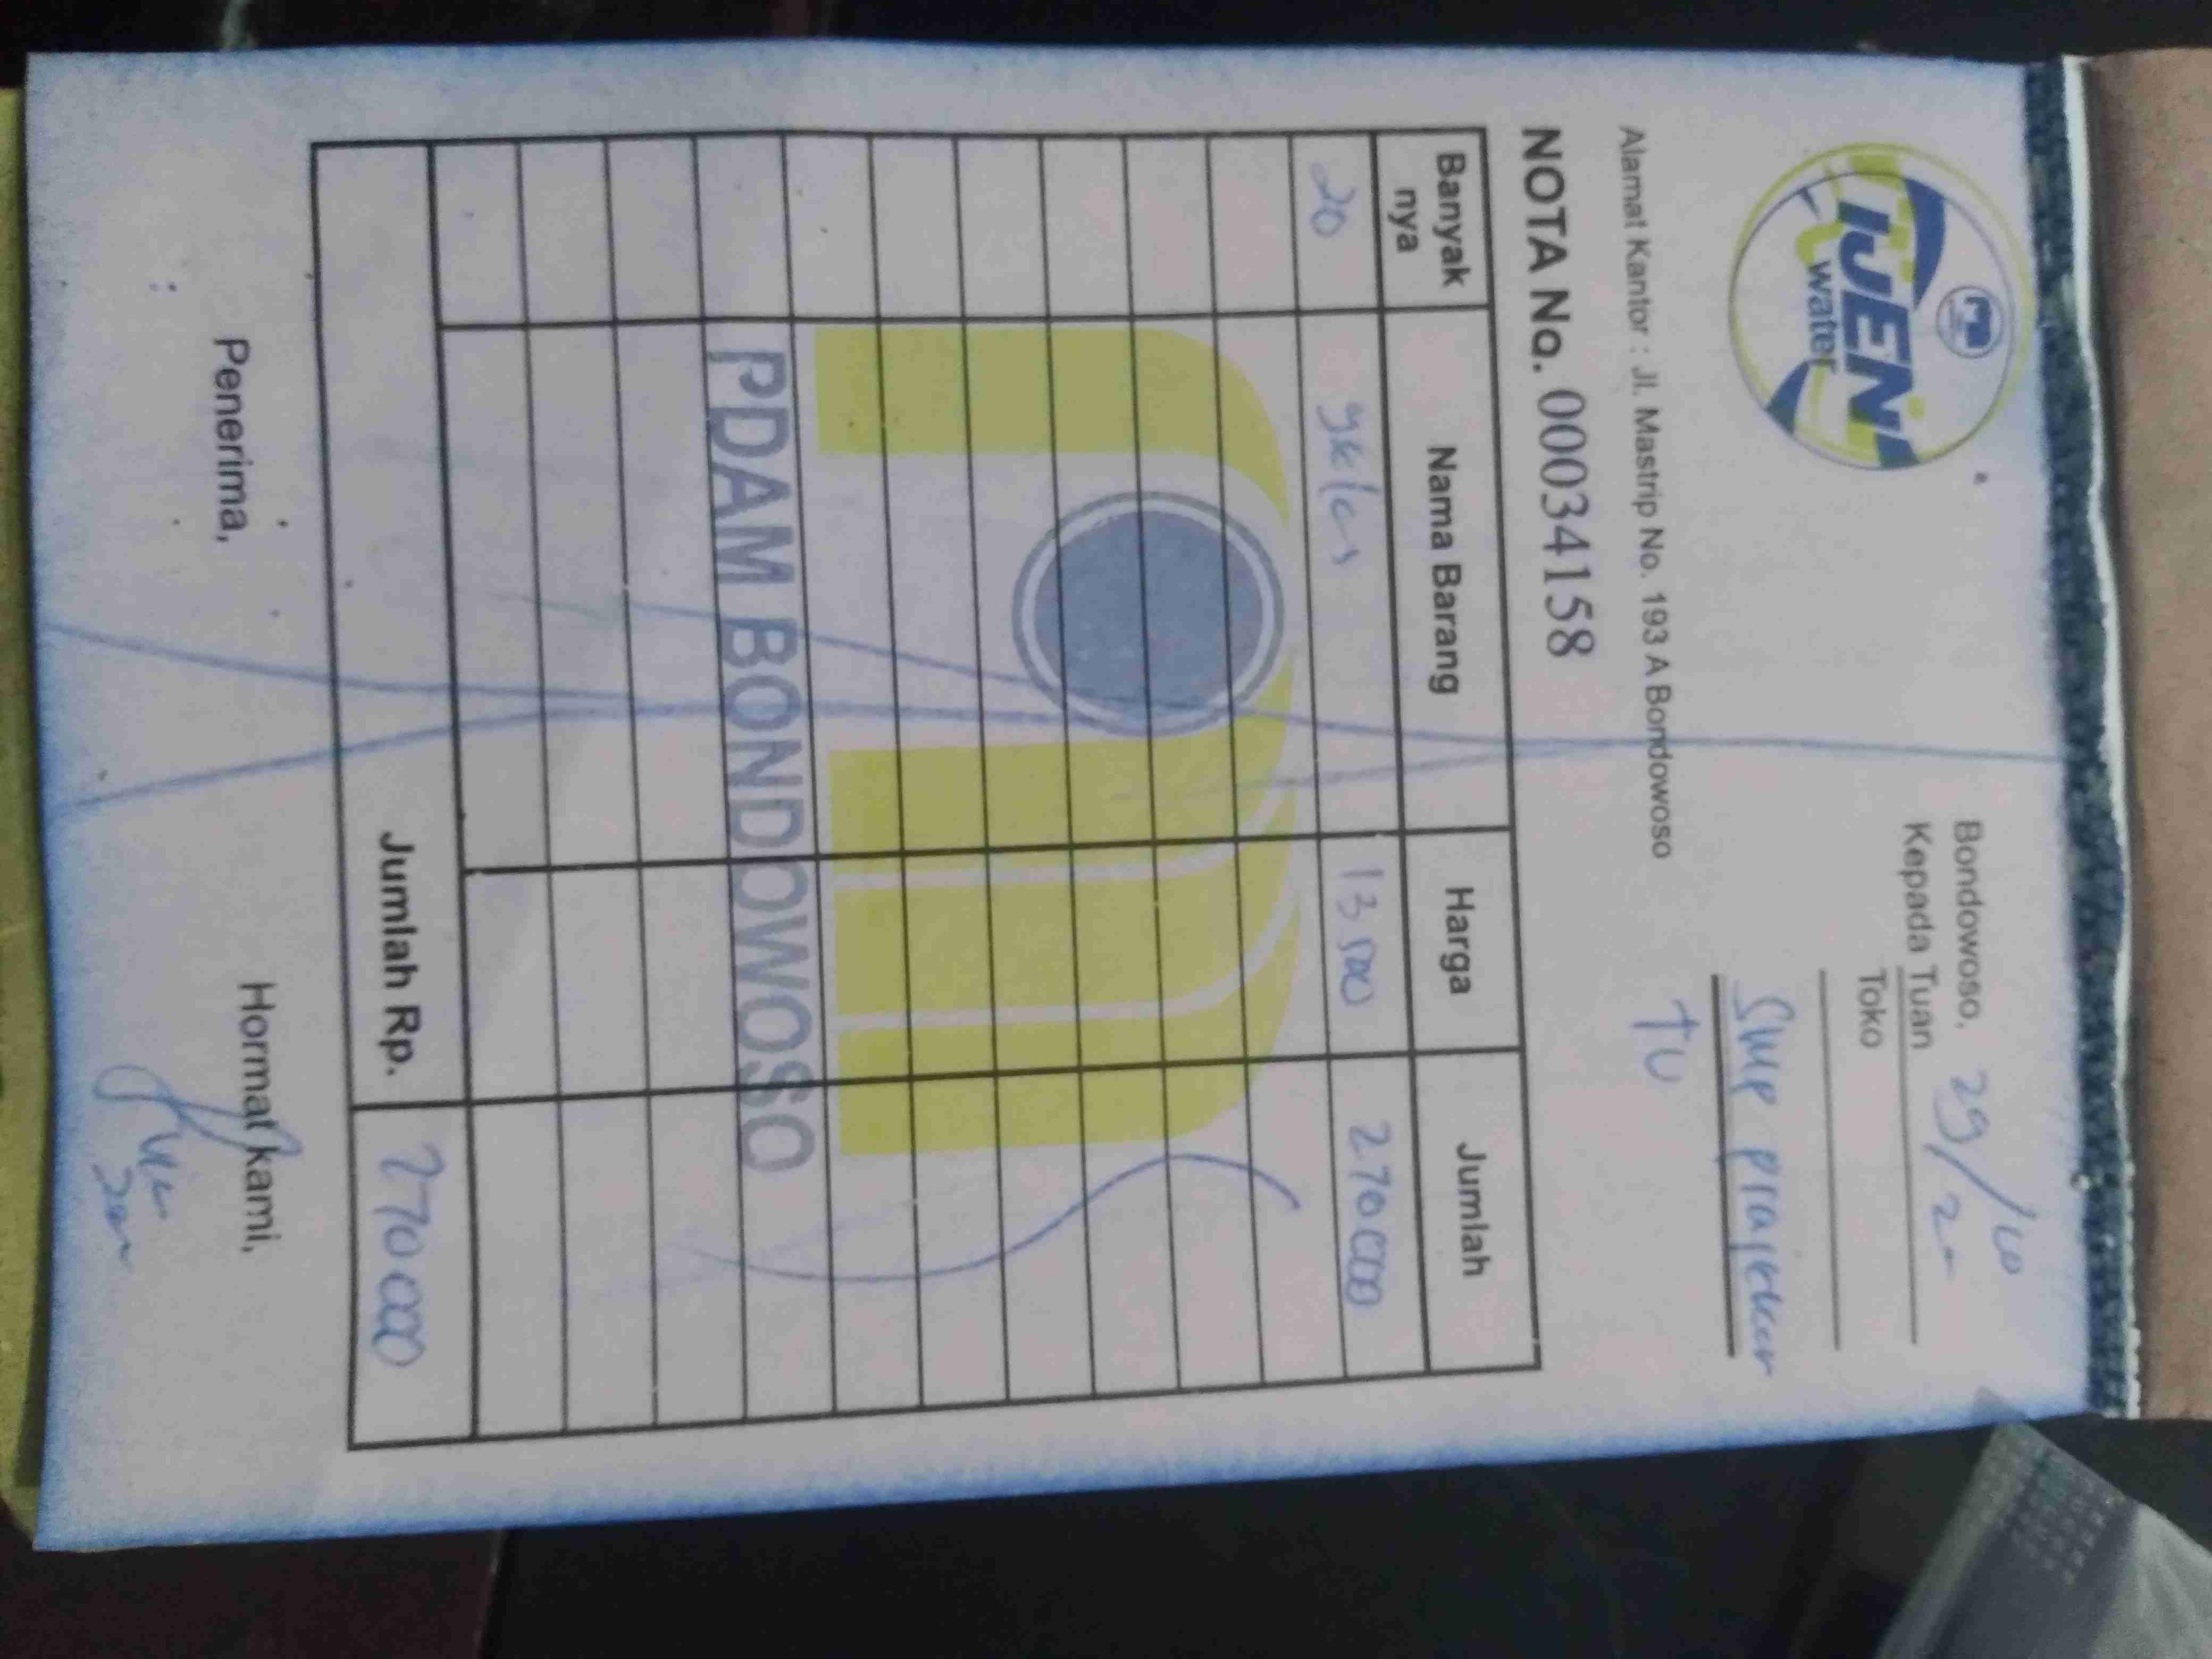 IJEN
water
Bondowoso, 29/10
Kepada Tuan
Toko
SMP prajekan
TU
Alamat Kantor : Jl. Mastrip No. 193 A Bondowoso
NOTA No. 00034158
Banyak nya Nama Barang Harga Jumlah
20 gelas 13 500 270 000
PDAM BONDOWOSO
Jumlah Rp. 270 000
Penerima, Hormat kami,